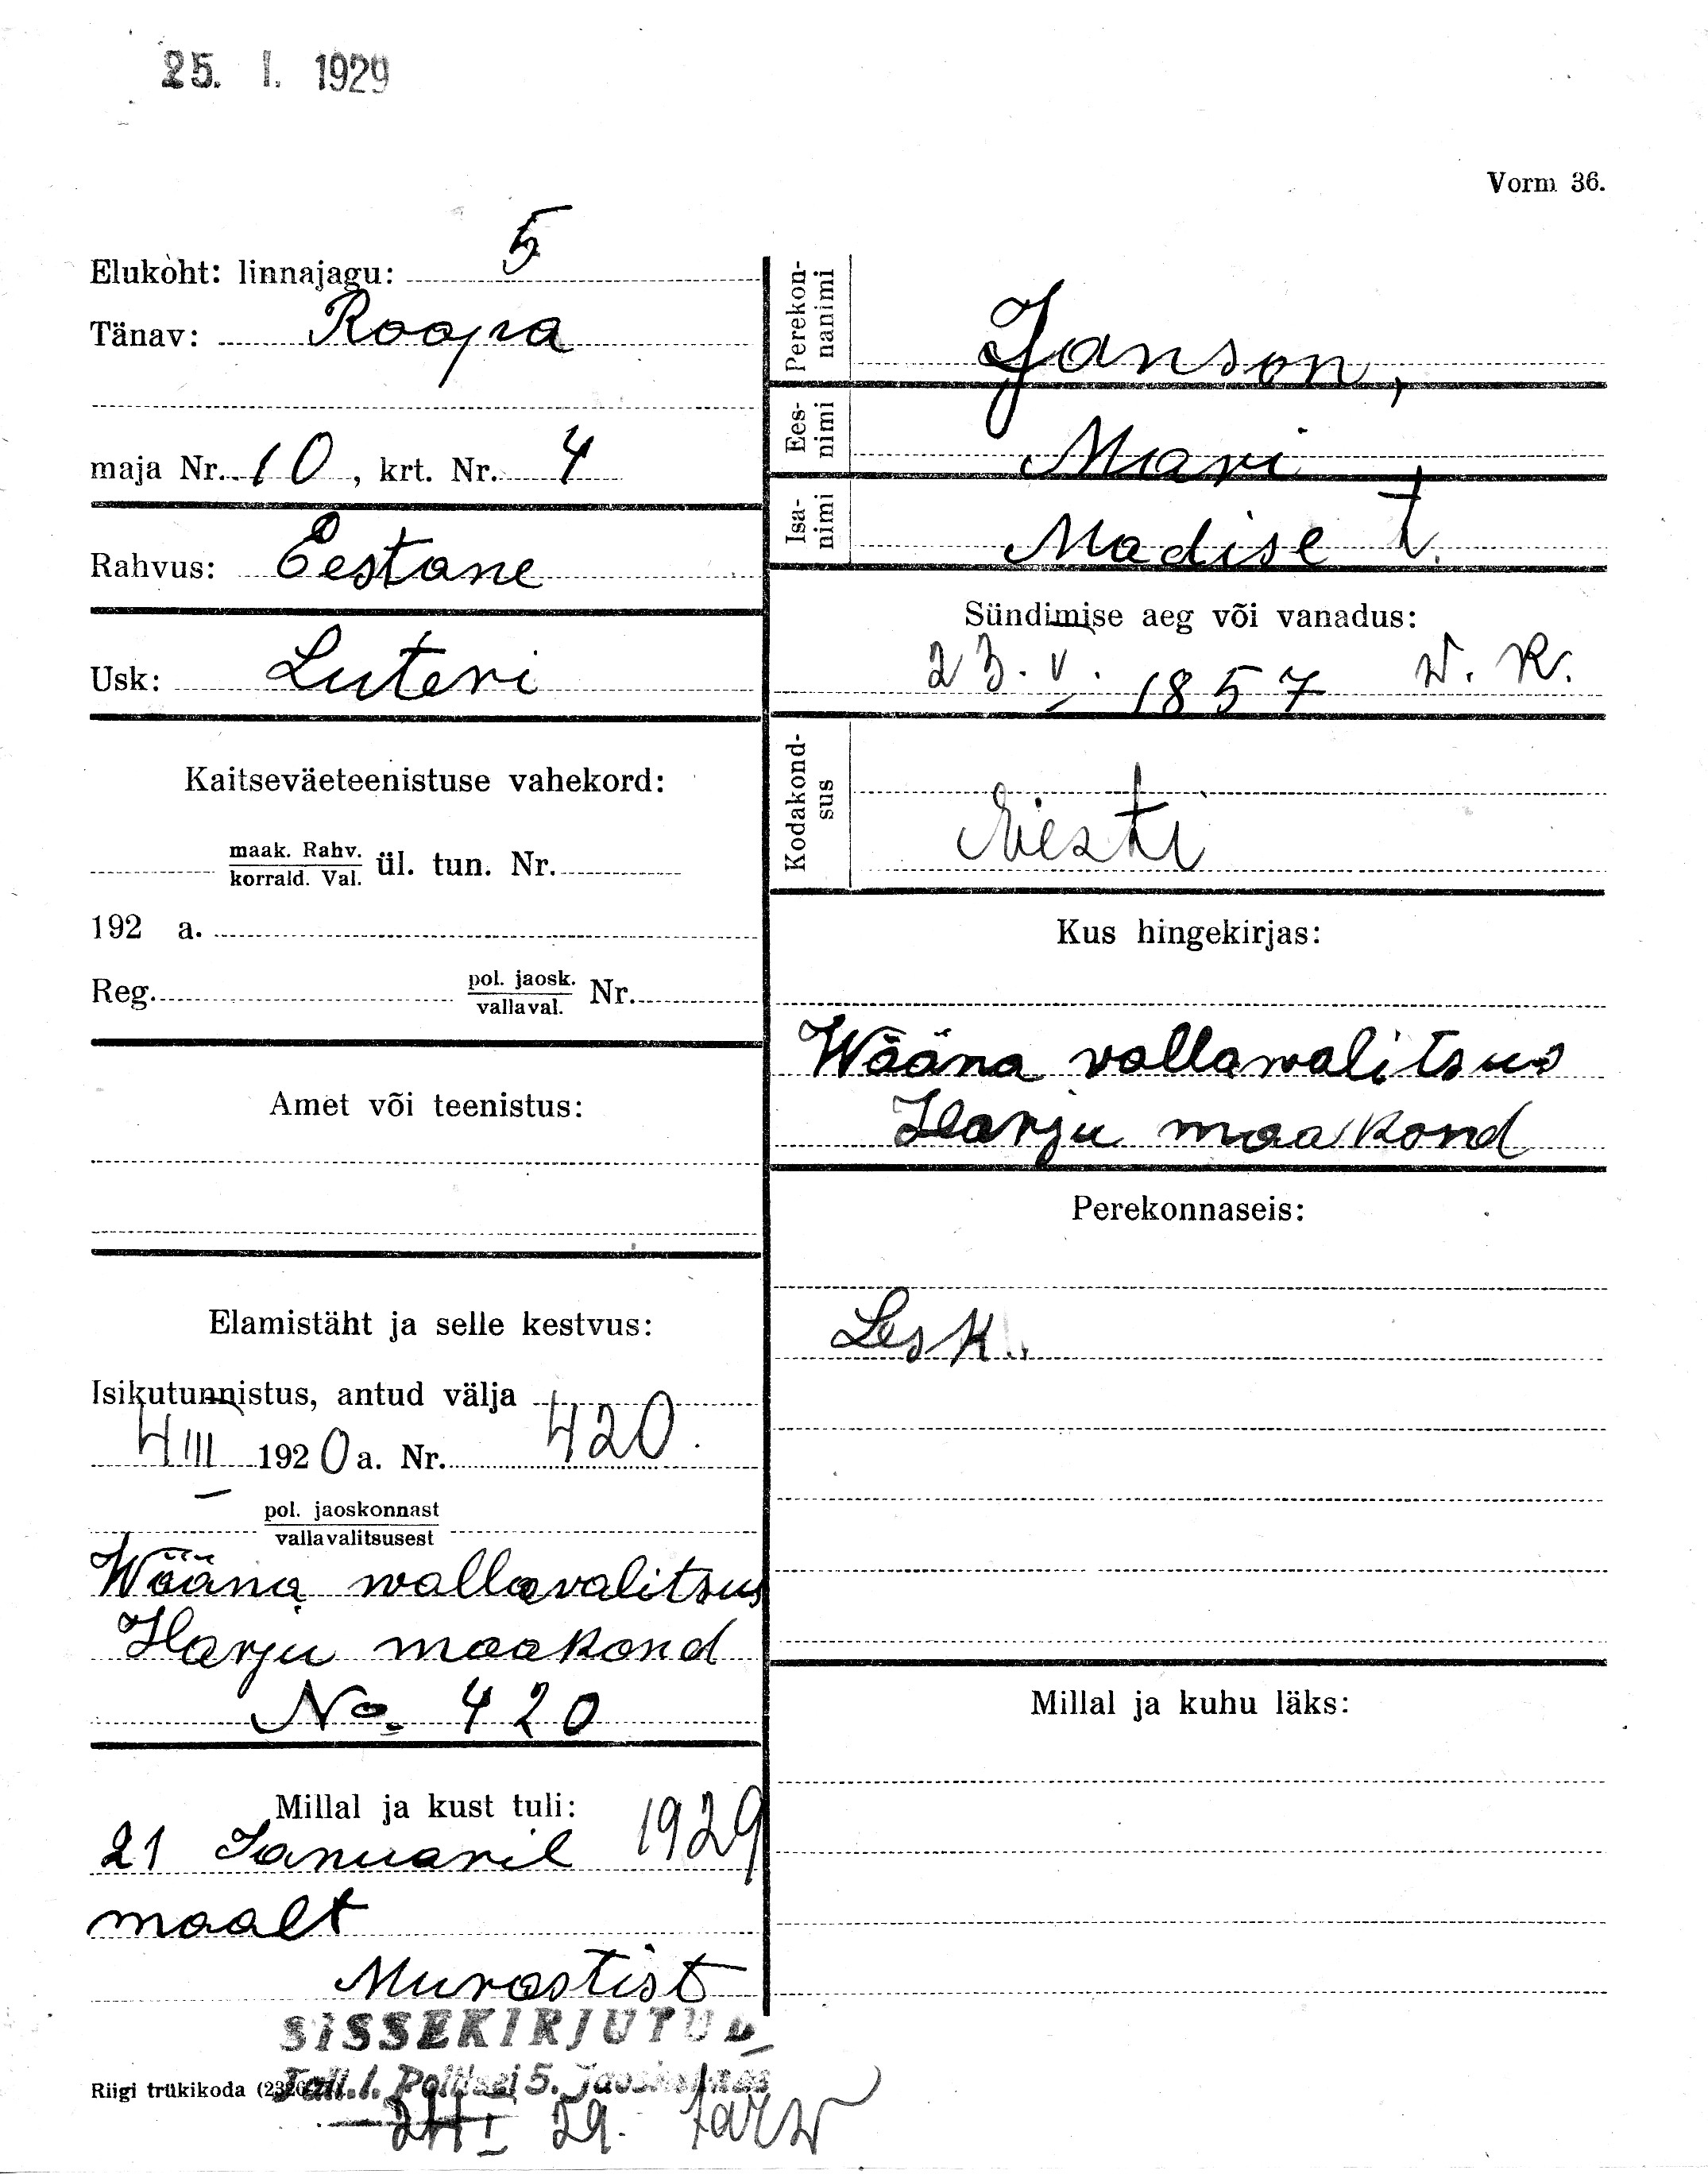 25. I. 1929
Vorm 36.
Elukoht: linnajagu: 5
Tänav: Roopa
maja Nr. 10, krt. Nr. 4
Rahvus: Eestane
Usk: Luteri
Kaitseväeteenistuse vahekord:
maak. Rahv.
korrald. Val. ül. tun. Nr.
192 a.
Reg. pol. jaosk.
vallaval. Nr.
Amet või teenistus:
Elamistäht ja selle kestvus:
Isikutunnistus, antud välja
4 III 1920 a. Nr. 420.
pol. jaoskonnast
vallavalitsusest
Wääna wallavalitsus
Harju maakond
No. 420
Millal ja kust tuli:
21 Januaril 1929
maalt
Murastist
SISSEKIRJUTUD
Tall. l. Politsei 5. Jaoskonnas
Riigi trükikoda
24 I 29.
Perekonnanimi
Janson,
Eesnimi
Mari
Isanimi
Madise t.
Sündimise aeg või vanadus:
23. V. 1857 v. k.
Kodakondsus
Eesti
Kus hingekirjas:
Wääna vallawalitsus
Harju maakond
Perekonnaseis:
Lesk
Millal ja kuhu läks: